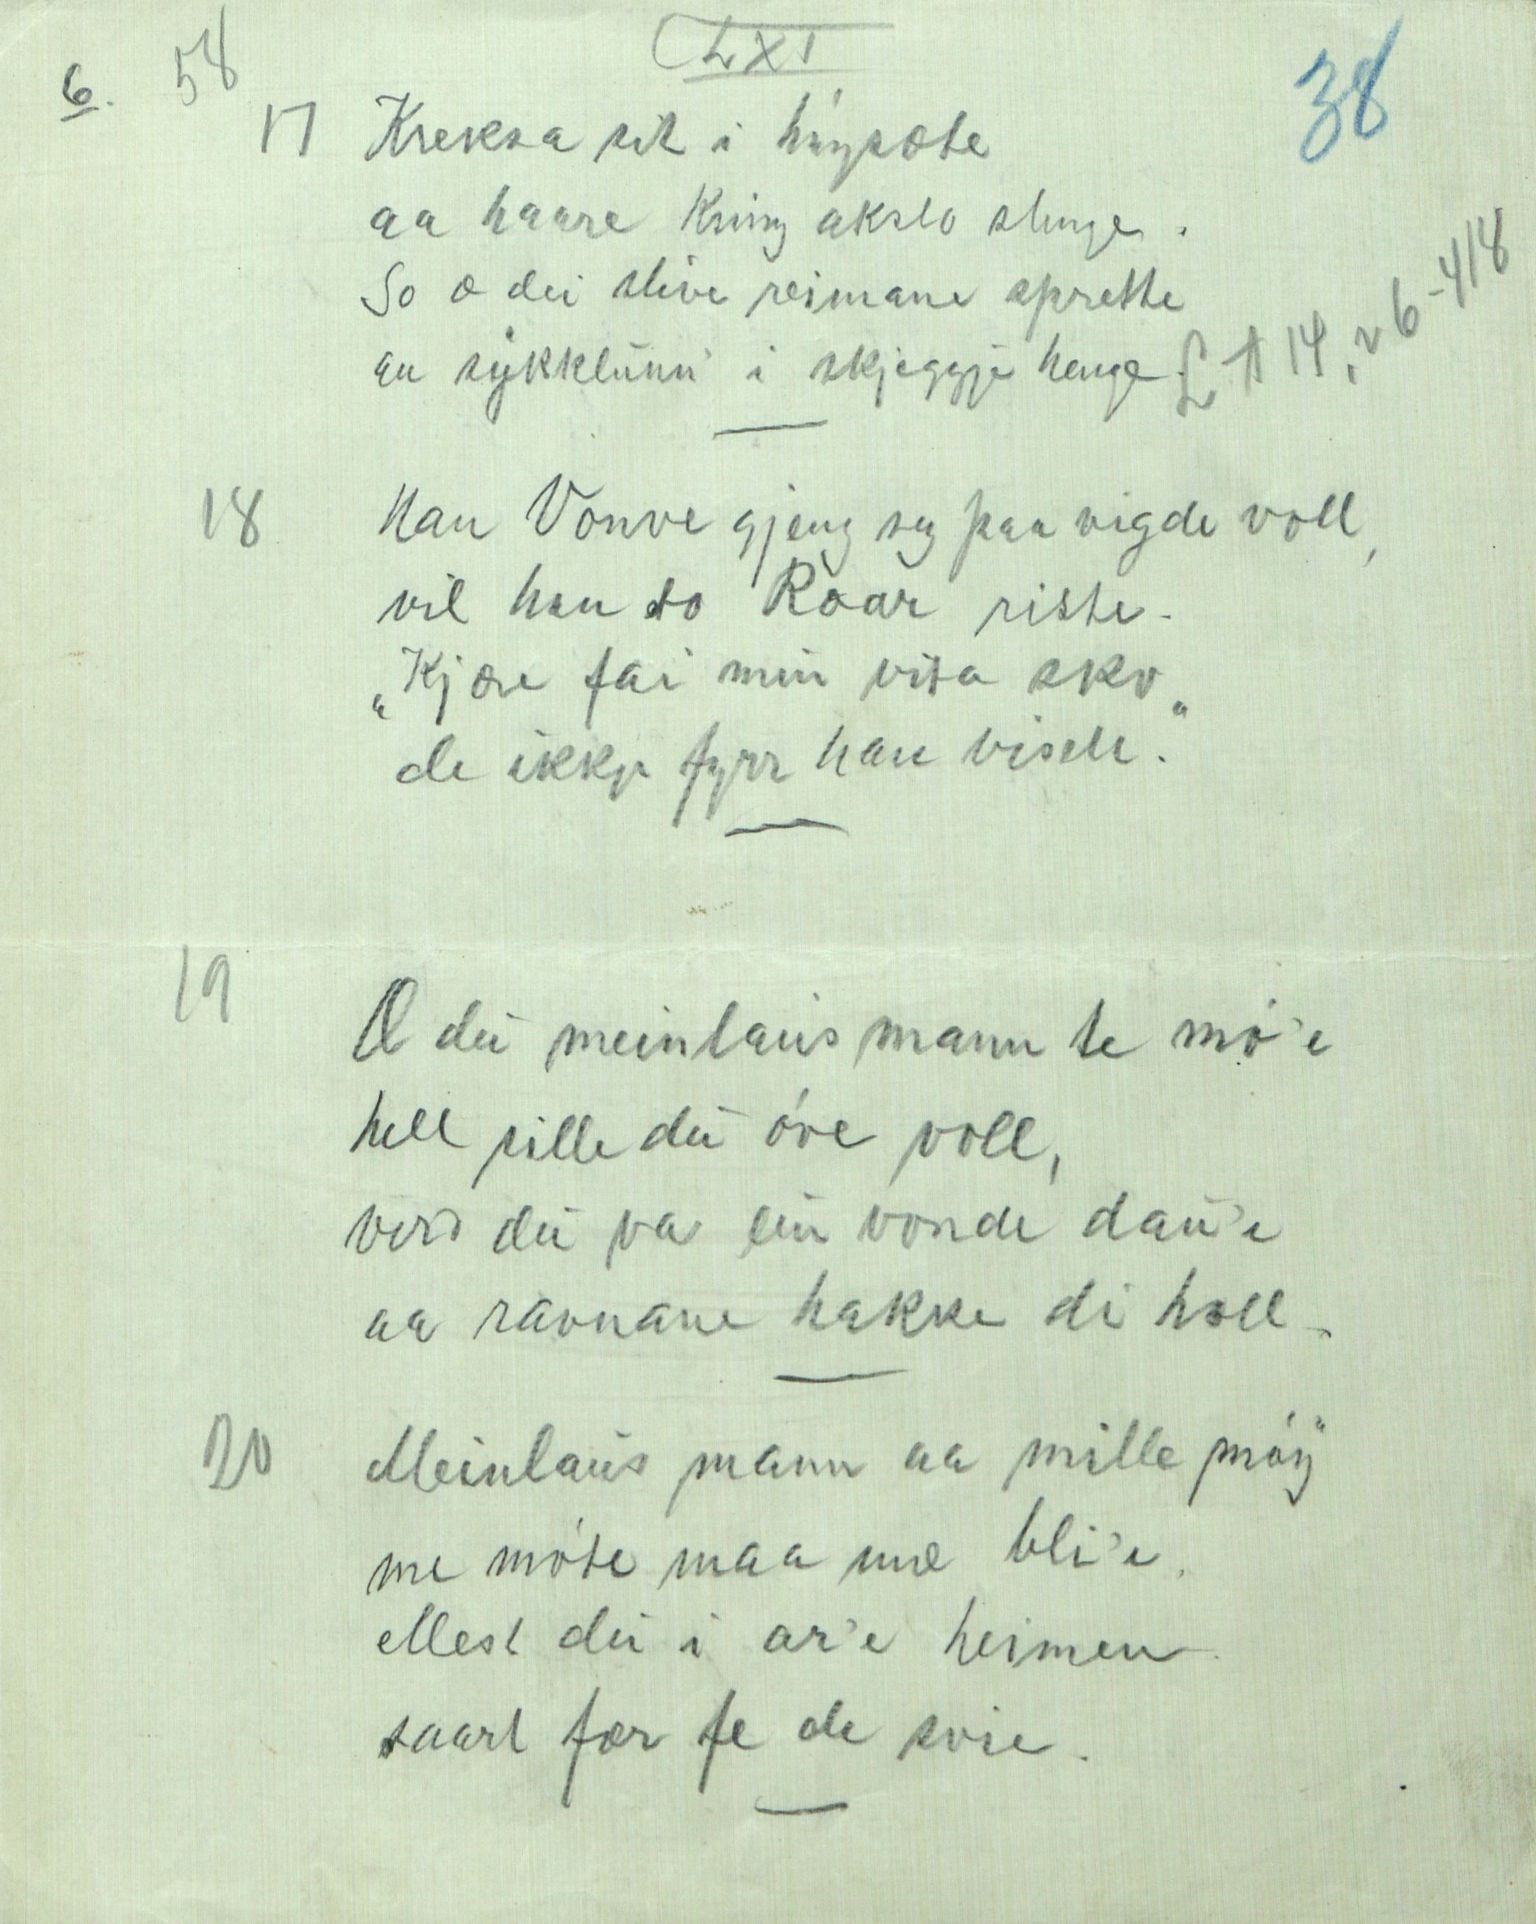 LXI
6. 58
38
17 Kreksa sit i høgsæte
aa haare kring akslo slenge.
So æ dei stive reimane sprette
au sykkluńn i skjeggje henge.
18 Han Vonve gjeng seg paa vigde voll,
vil han to Roar riste.
„Kjære fai min vita sko„
de ikkje fyrr han visste."
19 O dú meinlaus mann te mó'e
hell sille dú óve voll,
verd dú va ein vonde dau'e
aa ravnane hakke di holl.
20 Meinlaus mann aa mille móy
me móte maa mæ bli'e.
ellest dú i ar'e heimen
saart fær fe de svie.